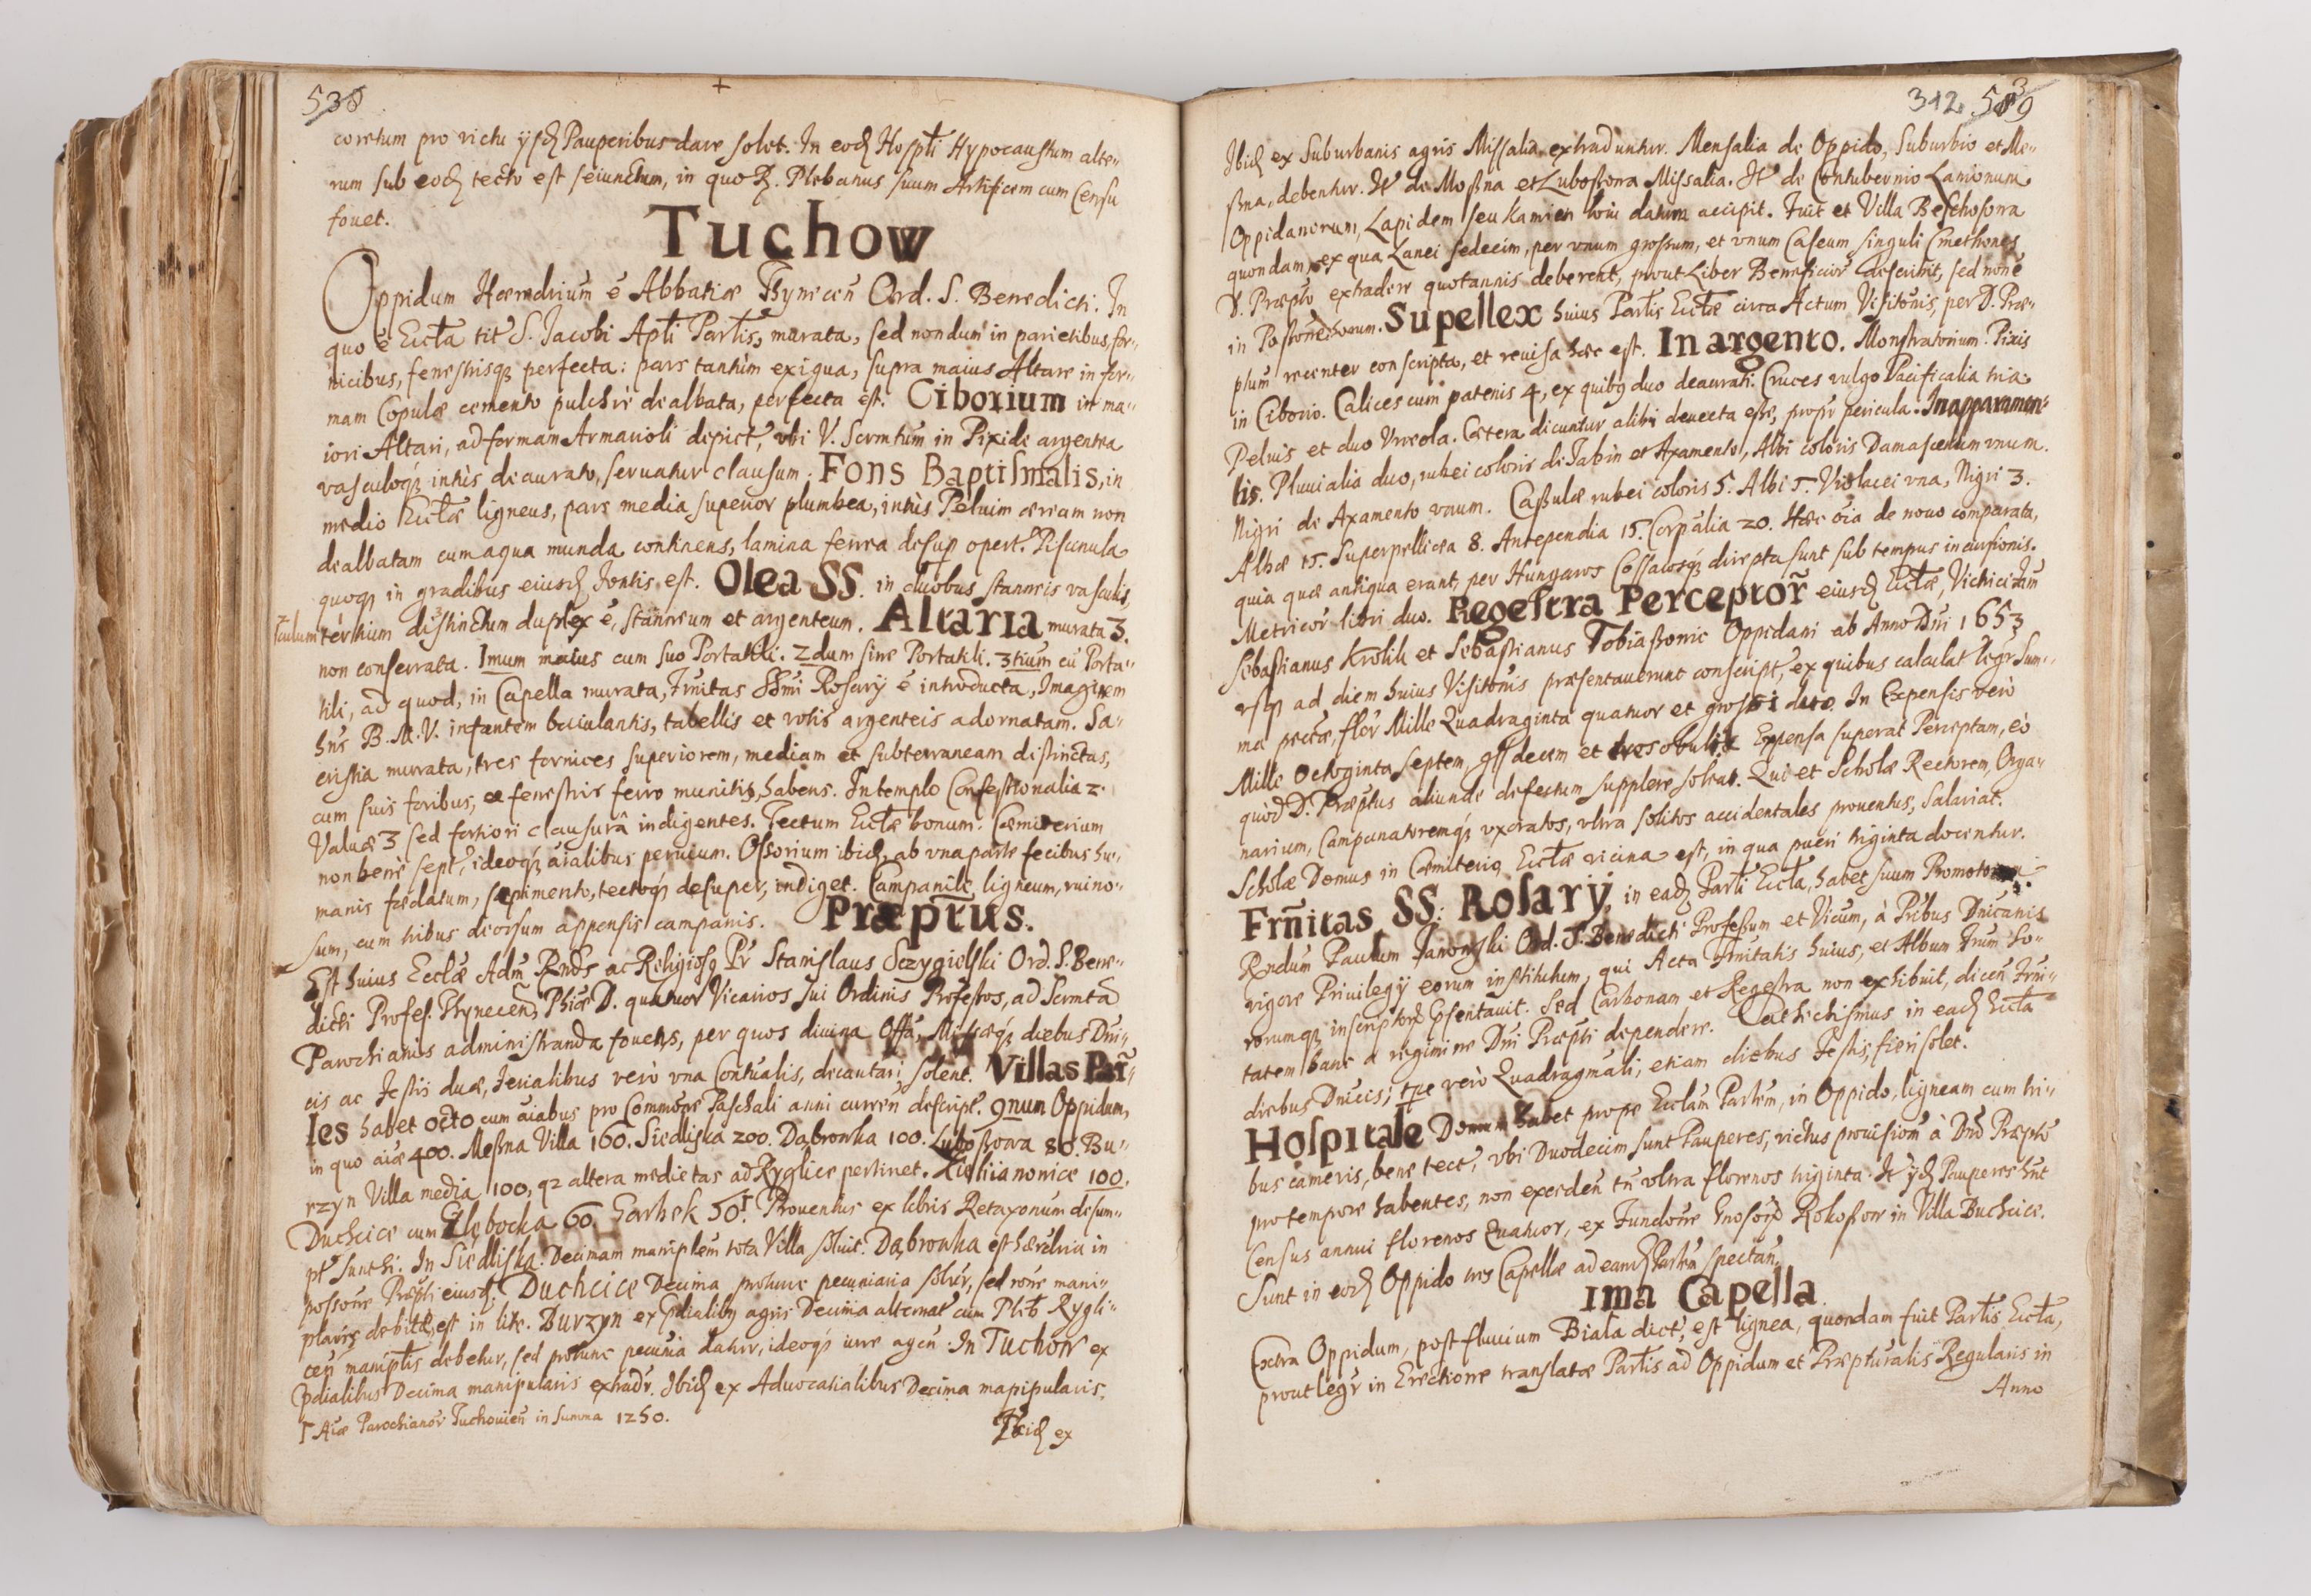 538
+
coretum pro victu ijsd Pauperibus dare solet. In eod Hospli Hypocaustum alte-
rum sub eod tecto est seiunctum, in quo R. Plebanus suum Artificem cum Censu
fouet.
Tuchow
Oppidum Hæredrium è Abbatiæ Thynecen Ord. S. Benedicti. In
quo è Eccła tit S. Jacobi Apłi Partis, murata, sed nondum in parietibus, for-
nicibus, fenestrisq perfecta: pars tantùm exigua, supra maius Altare in for-
mam Copulæ cemento pulchrè dealbata, perfecta est. Ciborium in ma-
iori Altari, ad formam Armarioli depict, vbi V. Scrmtum in Pixide argentea
vasculoq intùs deaurato, seruatur clausum. Fons Baptismalis, in
medio Eccłæ ligneus, pars media superior plumbea, intùs Peluim æream non
dealbatam cum aqua munda continens, lamina ferrea desup opert. Piscinula
quoq in gradibus eiusd Fontis est. Olea SS. in duobus stanneis vasculis,
tertium distinctum duplex è, stanneum et argenteum. Altaria murata 3.
non conserrata. Imum maius cum suo Portatili. 2dum sine Portatili. 3tium cu Porta-
tili, ad quod, in Capella murata, Frnitas SSmi Rosarij è introducta, Imaginem
hns B. M. V. infantem baiulantis, tabellis et votis argenteis adornatam. Sa-
cristia murata, tres fornices superiorem, mediam et subterraneam distinctas,
cum suis foribus, & fenestris ferro munitis, habens. In templo Confessionalia 2.
Valuæ 3 sed fortiori clausurâ indigentes. Tectum Eccłæ bonum. Cæmiterium
non benè sept, ideoq aialibus peruium. Ossorium ibid, ab vna parte fecibus hu-
manis fœdatum, sæpimento, tectoq desuper, indiget. Campanile ligneum, ruino-
sum, cum tribus deorsum appensis campanis. Præptus.
Est huius Eccłæ Adm Rnds ac Religiosq Pr Stanislaus Sczygielski Ord. S. Bene-
dicti Profes. Thynecen, Phiæ D. quatuor Vicarios sui Ordinis Professos, ad Scrmta
Parochianis administranda fouens, per quos diuina Offa, Missæq diebus Dni-
cis ac Festis duæ, Ferialibus verò vna Contualis, decantari solent. Villas Par-
les habet octo cum aiabus pro Commone Paschali anni curren descript. 9num Oppidum,
in quo aiæ 400. Meszna Villa 160. Siedliska 200. Dąbrowka 100. Luboszowa 80. Bu-
rzyn Villa media 100, q altera medietas ad Ryglice pertinet. Kielianowice 100.
Duchcice cum Głębocka 60. Garbek 50. Prouentus ex libris Retaxonum desum-
pt sunt hi. In Siedliska. Decimam maniplem tota Villa soluit. Dąbrowka est hæreditaria in
possone Præpti eiusd. Duchcice Decima protunc pecuniaria soluitr, sed rone mani-
plaris debitæ, est in lite. Burzyn ex Prdialibus agris Decima alternat cum Pleb Rygli-
cen maniplis debetur, sed protunc pecunia datur, ideoq iure agen. In Tuchow ex
Prdialibus Decima manipularis extradr. Ibid ex Aduocatialibus Decima mapipularis,
Aiæ Parochianor Tuchouien in summa 1250.
Ibid ex
312. 539
Ibid ex Suburbanis agris Missalia extraduntur. Mensalia de Oppido, Suburbio et Me-
szna, debentur. It de Moszna et Luboszowa Missalia. It de Contubernio Lanionum
Oppidanorum, Lapidem seu kamien łoiu datum accipit. Fuit et Villa Beschosowa
quondam, ex qua Lanei sedecim, per vnum grossum, et vnum Caseum singuli Cmethones
D. Præpto extradere quotannis deberent, prout Liber Beneficior describit, sed non è
in Postone horum. Supellex huius Partis Eccłæ circa Actum Visitonis, per D. Præ-
ptum recenter conscripta, et reuisa hæc est. In argento. Monstratorium. Pixis
in Ciborio. Calices cum patenis 4, ex quibus duo deaurati. Cruces vulgo Pacificalia tria.
Peluis et duo Vrceola. Cætera dicuntur alibi deuecta esse, propr pericula. In apparamen-
tis. Pluuialia duo, rubei coloris de Tabin et Axamento, Albi coloris Damascenum vnum.
Nigri de Axamento vnum. Casulæ rubei coloris 5. Albi 5. Violacei vna, Nigri 3.
Albæ 15. Superpellicea 8. Antependia 15. Corpalia 20. Hæc oia de nouo comparata,
quia quæ antiqua erant, per Hungaros Cossacosq direpta sunt sub tempus incursionis.
Metricor libri duo. Regestra Perceptor eiusd Eccłæ, Victrici tum
Sebastianus Krolik et Sebastianus Tobiaszowic Oppidani ab Anno Dni 1653
vsq ad diem huius Visitonis præsentauerunt conscript, ex quibus calculat legr Sum-
ma prctæ, flor Mille Quadraginta quatuor et grossi duo. In Expensis verò
Mille Octoginta septem, gss decem et tres oboli. Expensa superat Perceptam, eò
quòd D. Præptus aliunde defectum supplere soleat. Qui et Scholæ Rectorem, Orga-
narium, Campanatoremq vxoratos, vltra solitos accidentales prouentus, Salariat.
Scholæ Domus in Cæmiterio Eccłæ vicina est, in qua pueri triginta docentur.
Frnitas SS: Rosarij, in ead Parti Eccła, habet suum Promotorem
Rndum Paulum Janowski Ord. S. Benedicti Professum et Vicum, à Prbus Dnicanis
vigore Priuilegij eorum institutum, qui Acta Frnitatis huius, et Album Frum So-
rorumq inscriptor psentauit. Sed Carbonam et Regestra non exhibuit, dicen Frni-
tatem hanc a regimine Dni Præpti dependere. Cathechismus in ead Eccła
diebus Dnicis; tpe verò Quadragmali, etiam diebus Festis, fieri solet.
Hospitale Domum habet prope Eccłam Partem, in Oppido, ligneam cum tri-
bus cameris, bene tect, vbi Duodecim sunt Pauperes, victus prouisiom à Dno Præpto
pro tempore habentes, non exceden tn vltra florenos triginta. It ijd Pauperes hnt
Census annui florenos Quatuor, ex Fundone Gnosor Rokoszow in Villa Buchcice.
Sunt in eod Oppido tres Capellæ ad eand Partem spectan.
Ima Capella.
Extra Oppidum, post fluuium Biała dict, est lignea, quondam fuit Partis Eccła,
prout legr in Erectione translatæ Partis ad Oppidum et Præpturalis Regularis in
Anno